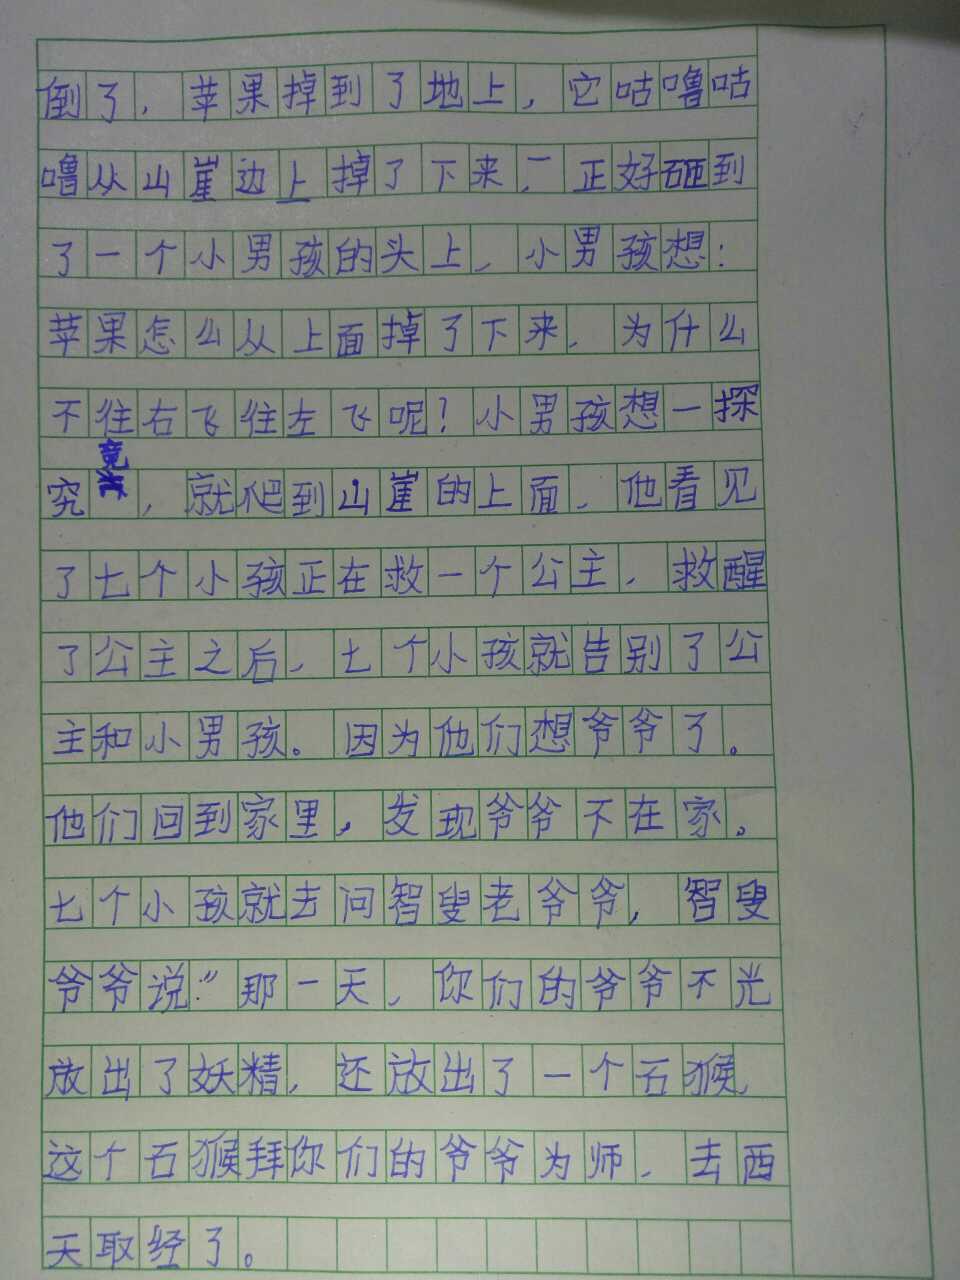 倒了，苹果掉到了地上，它咕噜咕
噜从山崖边上掉了下来，正好砸到
了一个小男孩的头上，小男孩想：
苹果怎么从上面掉了下来，为什么
不往右飞往左飞呢？小男孩想一探
究竟，就爬到山崖的上面，他看见
了七个小孩正在救一个公主，救醒
了公主之后，七个小孩就告别了公
主和小男孩。因为他们想爷爷了。
他们回到家里，发现爷爷不在家。
七个小孩就去问智叟老爷爷，智叟
爷爷说：“那一天，你们的爷爷不光
放出了妖精，还放出了一个石猴，
这个石猴拜你们的爷爷为师，去西
天取经了。